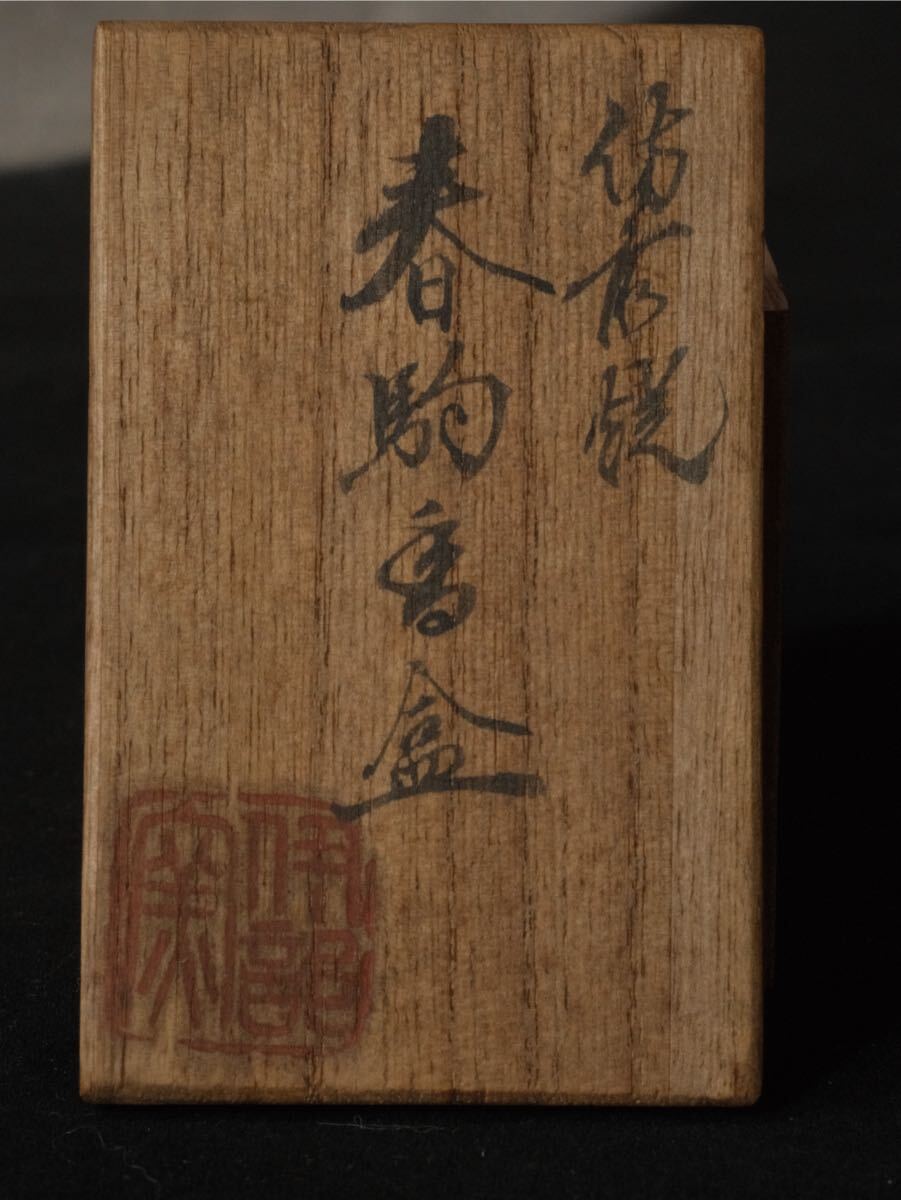 仿古焼
春駒香盒